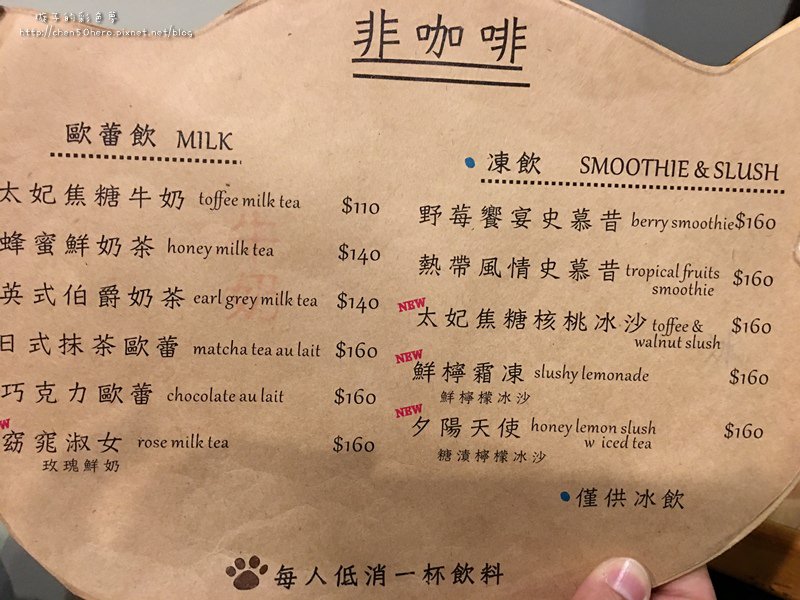 孩子的彩色夢
http://chen50hero.pixnet.net/blog
非咖啡
歐蕾飲 MILK
太妃焦糖牛奶 toffee milk tea $110
蜂蜜鮮奶茶 honey milk tea $140
英式伯爵奶茶 earl grey milk tea $140
日式抹茶歐蕾 matcha tea au lait $160
巧克力歐蕾 chocolate au lait $160
窈窕淑女 rose milk tea $160
玫瑰鮮奶
凍飲 SMOOTHIE & SLUSH
野莓饗宴史慕昔 berry smoothie $160
熱帶風情史慕昔 tropical fruits smoothie $160
NEW
太妃焦糖核桃冰沙 toffee & walnut slush $160
NEW
鮮檸霜凍 slushy lemonade $160
鮮檸檬冰沙
NEW
夕陽天使 honey lemon slush w iced tea $160
糖漬檸檬冰沙
僅供冰飲
每人低消一杯飲料